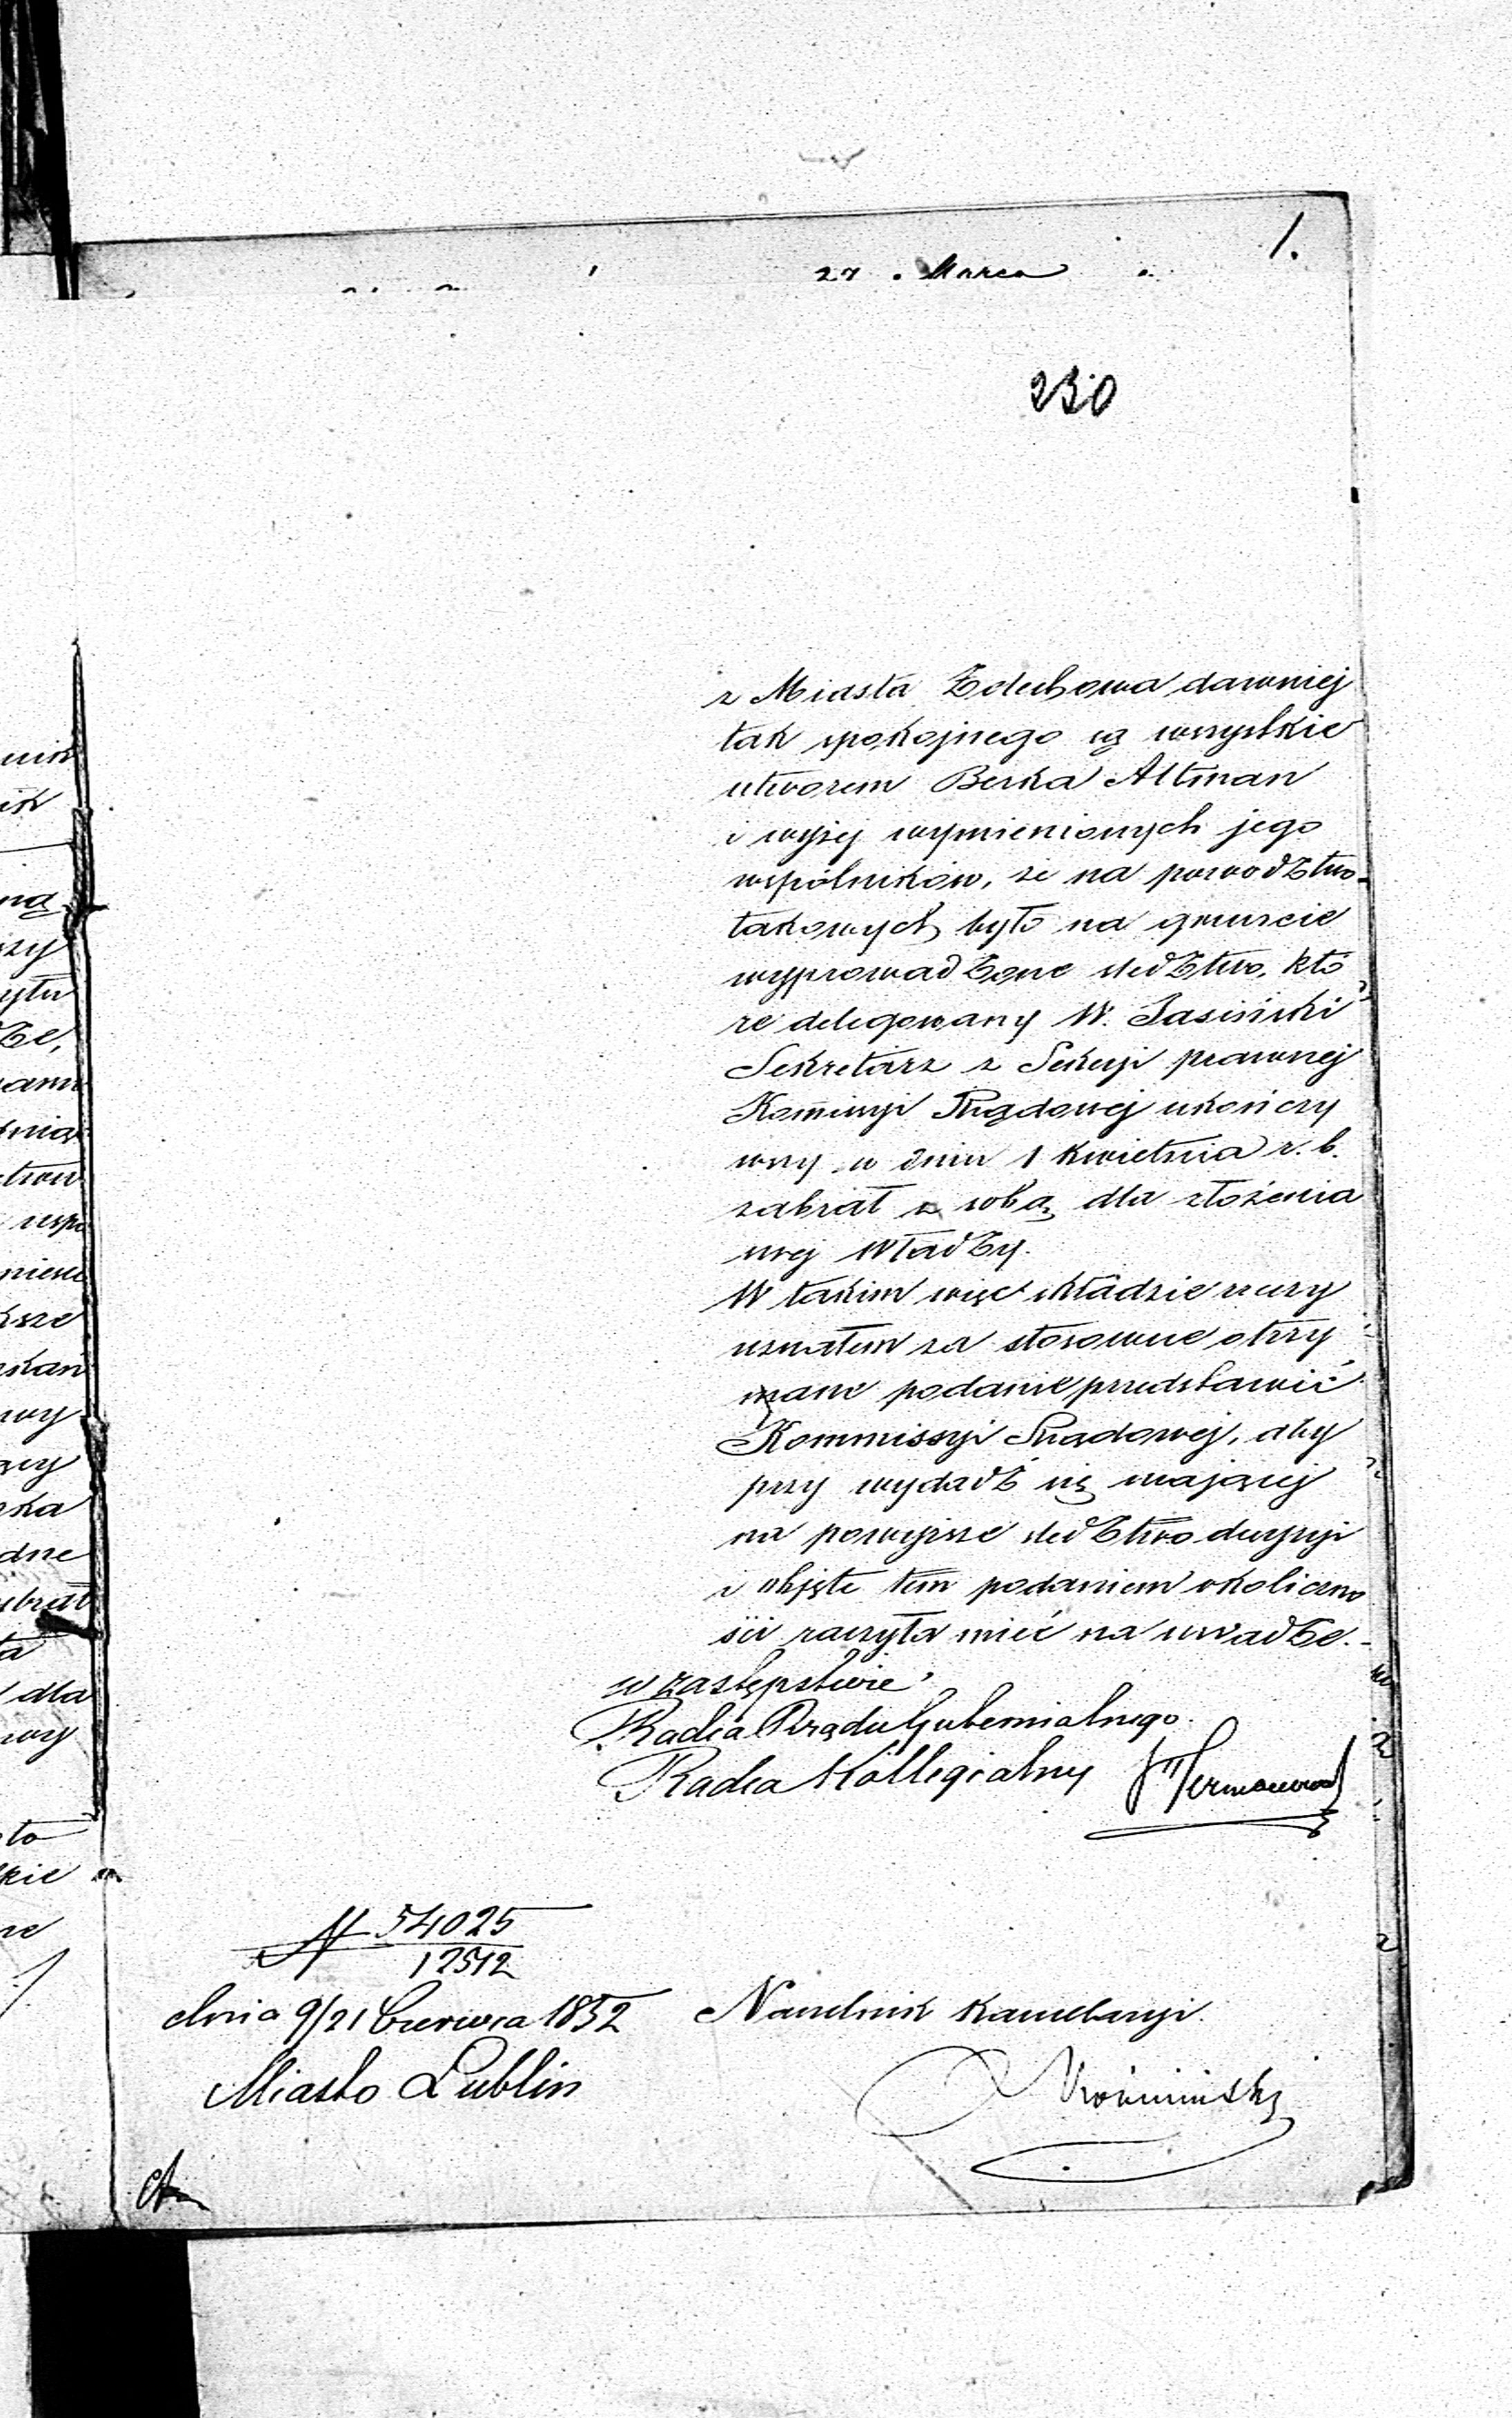 1.
27 Marca
230
z Miasta Żelechowa dawniej
tak spokojnego są wszystkie
utworem Berka Altman
i wyżej wymienionych jego
wspólników, że na powodztwo
takowych, było na gruncie
wyprowadzone śledztwo, któ
re delegowany W. Jasiński
Sekretarz z Sekcyi prawnej
Kommisyi Rządowej ukończy
wszy w dniu 1 Kwietnia r. b.
zabrał z sobą dla złożenia
swej Władzy.
W takim więc składzie rzeczy
uznałem za stosowne otrzy
mane podanie przedstawić
Kommissyi Rządowej, aby
przy wydadź się mającej
na powyższe śledztwo decyzyi
i objęte tem podaniem okoliczno
ści raczyła mieć na uwadze.
w zastępstwie
Radca Rządu Gubernialnego.
Radca Kollegialny
N 54025
17512
dnia 9/21 Czerwca 1852
Miasto Lublin
Naczelnik Kancellaryi.